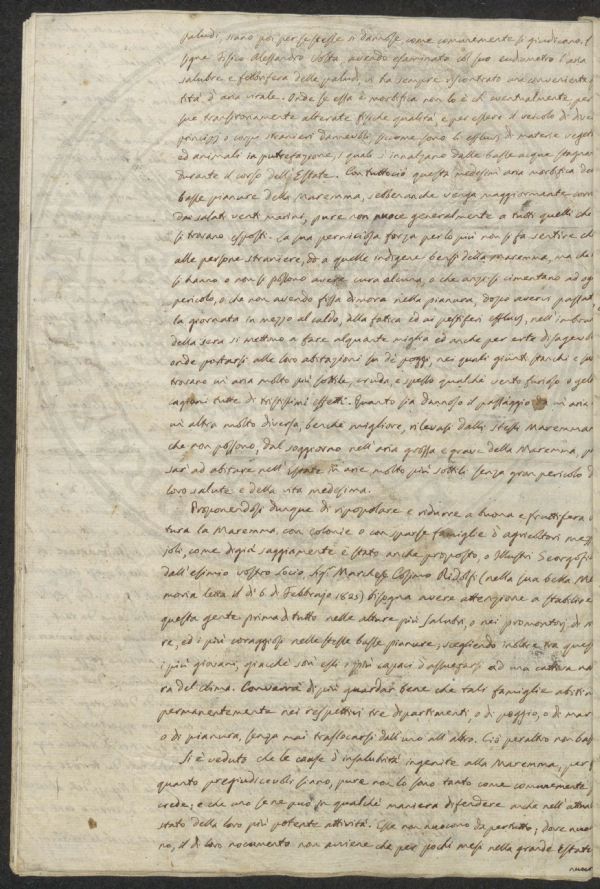 paludi, siano poi per se stesse sì dannose, come comunemente si giudicano. Il
Sigre Fisico Alessandro Volta, avendo esaminato col suo eudiometro l'aria
salubre e febbrifera delle paludi, vi ha sempre riscontrato una conveniente
tità d'aria vitale. Onde se essa è morbifica non lo è ch'eventualmente per
sue transitoriamente alterate fisiche qualità, e per essere il veicolo di dive
principj o corpi stranieri dannevoli, siccome sono li effluvj di materie veget
ed animali in putrefazione, i quali s'innalzano dalle basse acque stagna
durante il corso dell'Estate. Contuttociò questa medesima aria morbifica del
basse pianure della Maremma, sebbenanche venga maggiormente
dai salati venti marini, pure non nuoce generalmente a tutti quelli che
si trovano esposti. La sua perniciosa forza per lo più non si fa sentire ch
alle persone straniere, od a quelle indigene bensì della maremma, ma che
si hanno o non si possono avere cura alcuna, o che anzi si cimentano ad og
pericolo, o che non avendo fissa dimora nella pianura, dopo avervi passat
la giornata in mezzo al caldo, alla fatica ed ai pestiferi effluvj, nell'imbrun
della sera si mettono a fare alquante miglia ed anche per erte disagevoli
onde portarsi alle loro abitazioni su de' poggi, nei quali giunti stanchi e su
trovano un aria molto più sottile, cruda, e spesso qualche vento furioso o gel
cagioni tutte di tristissimi effetti. Quanto sia dannoso il passaggio da un aria
un altra molto diversa, benchè migliore, rilevasi dalli stessi Maremman
che non possono, dal soggiorno nell'aria grossa e grave della Maremma, p
sare ad abitare nell'Estate in arie molto più sottili senza gran pericolo d
loro salute e della vita medesima.
Proponendosi dunque di ripopolare e ridurre a buona e fruttifera c
tura la Maremma, con colonie o con sparse famiglie d'agricoltori mez
joli, come di già saggiamente è stato anche proposto, o Illustri Georgofi
dall'esimio vostro Socio Sigr Marchese Cosimo Ridolfi (nella sua bella Me
moria letta il dì 6 di Febbrajo 1825) bisogna avere attenzione a stabilire
questa gente prima di tutto nelle alture più salubri, o nei promontorj di m
re, ed i più coraggiosi nelle stesse basse pianure, scegliendo inoltre tra ques
i più giovani, giacchè son essi i più capaci d'assuefarsi ad una cattiva na
ra del clima. Converrà di più guardar bene che tali famiglie abitin
permanentemente nei respettivi tre dipartimenti, o di poggio, o di mar
o di pianura, senza mai traslocarsi dall'uno all'altro. Ciò peraltro non bas
Si è veduto che le cause d'insalubrità ingenite alla Maremma, per
quanto pregiudicevoli siano, pure non lo sono tanto come comunemente
crede; e che uno se ne può in qualche maniera difendere anche nell'attua
stato della loro più potente attività. Esse non nuocono dapertutto; dove nuo
no, il di loro nocumento non avviene che per pochi mesi nella grande Estate
nuoce